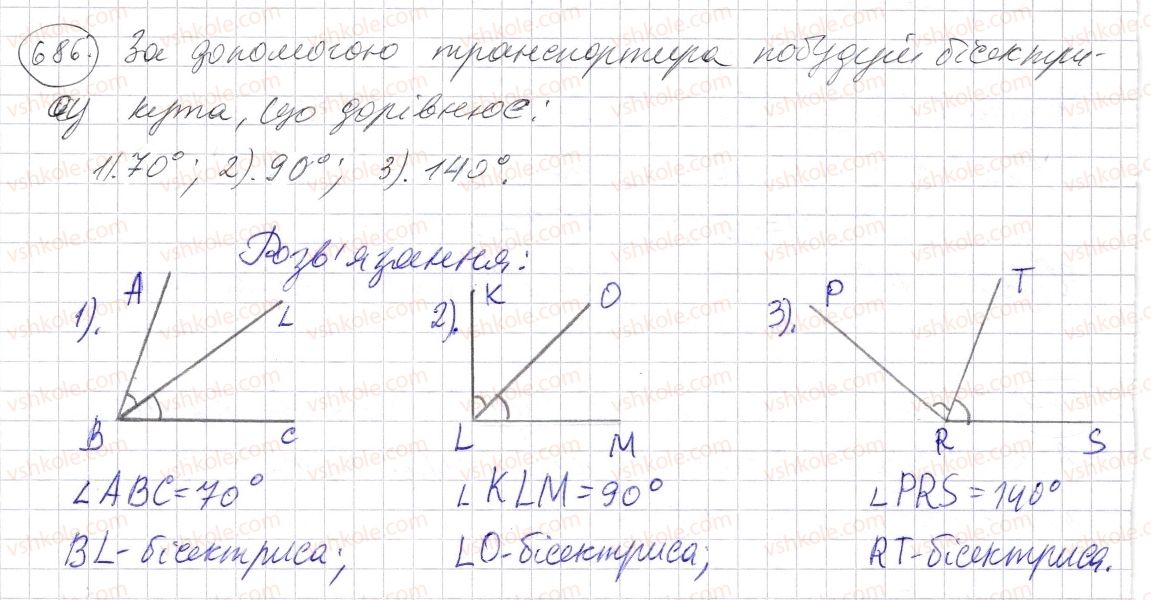 686. За допомогою транспортира побудуй бісектри-
су кута, що дорівнює:
1). 70°; 2). 90°; 3). 140°.
Розв'язання:
1). A L B C
2). K O L M
3). P T R S
∠ABC = 70° ∠KLM = 90° ∠PRS = 140°
BL - бісектриса; LO - бісектриса; RT - бісектриса.
vshkole.com